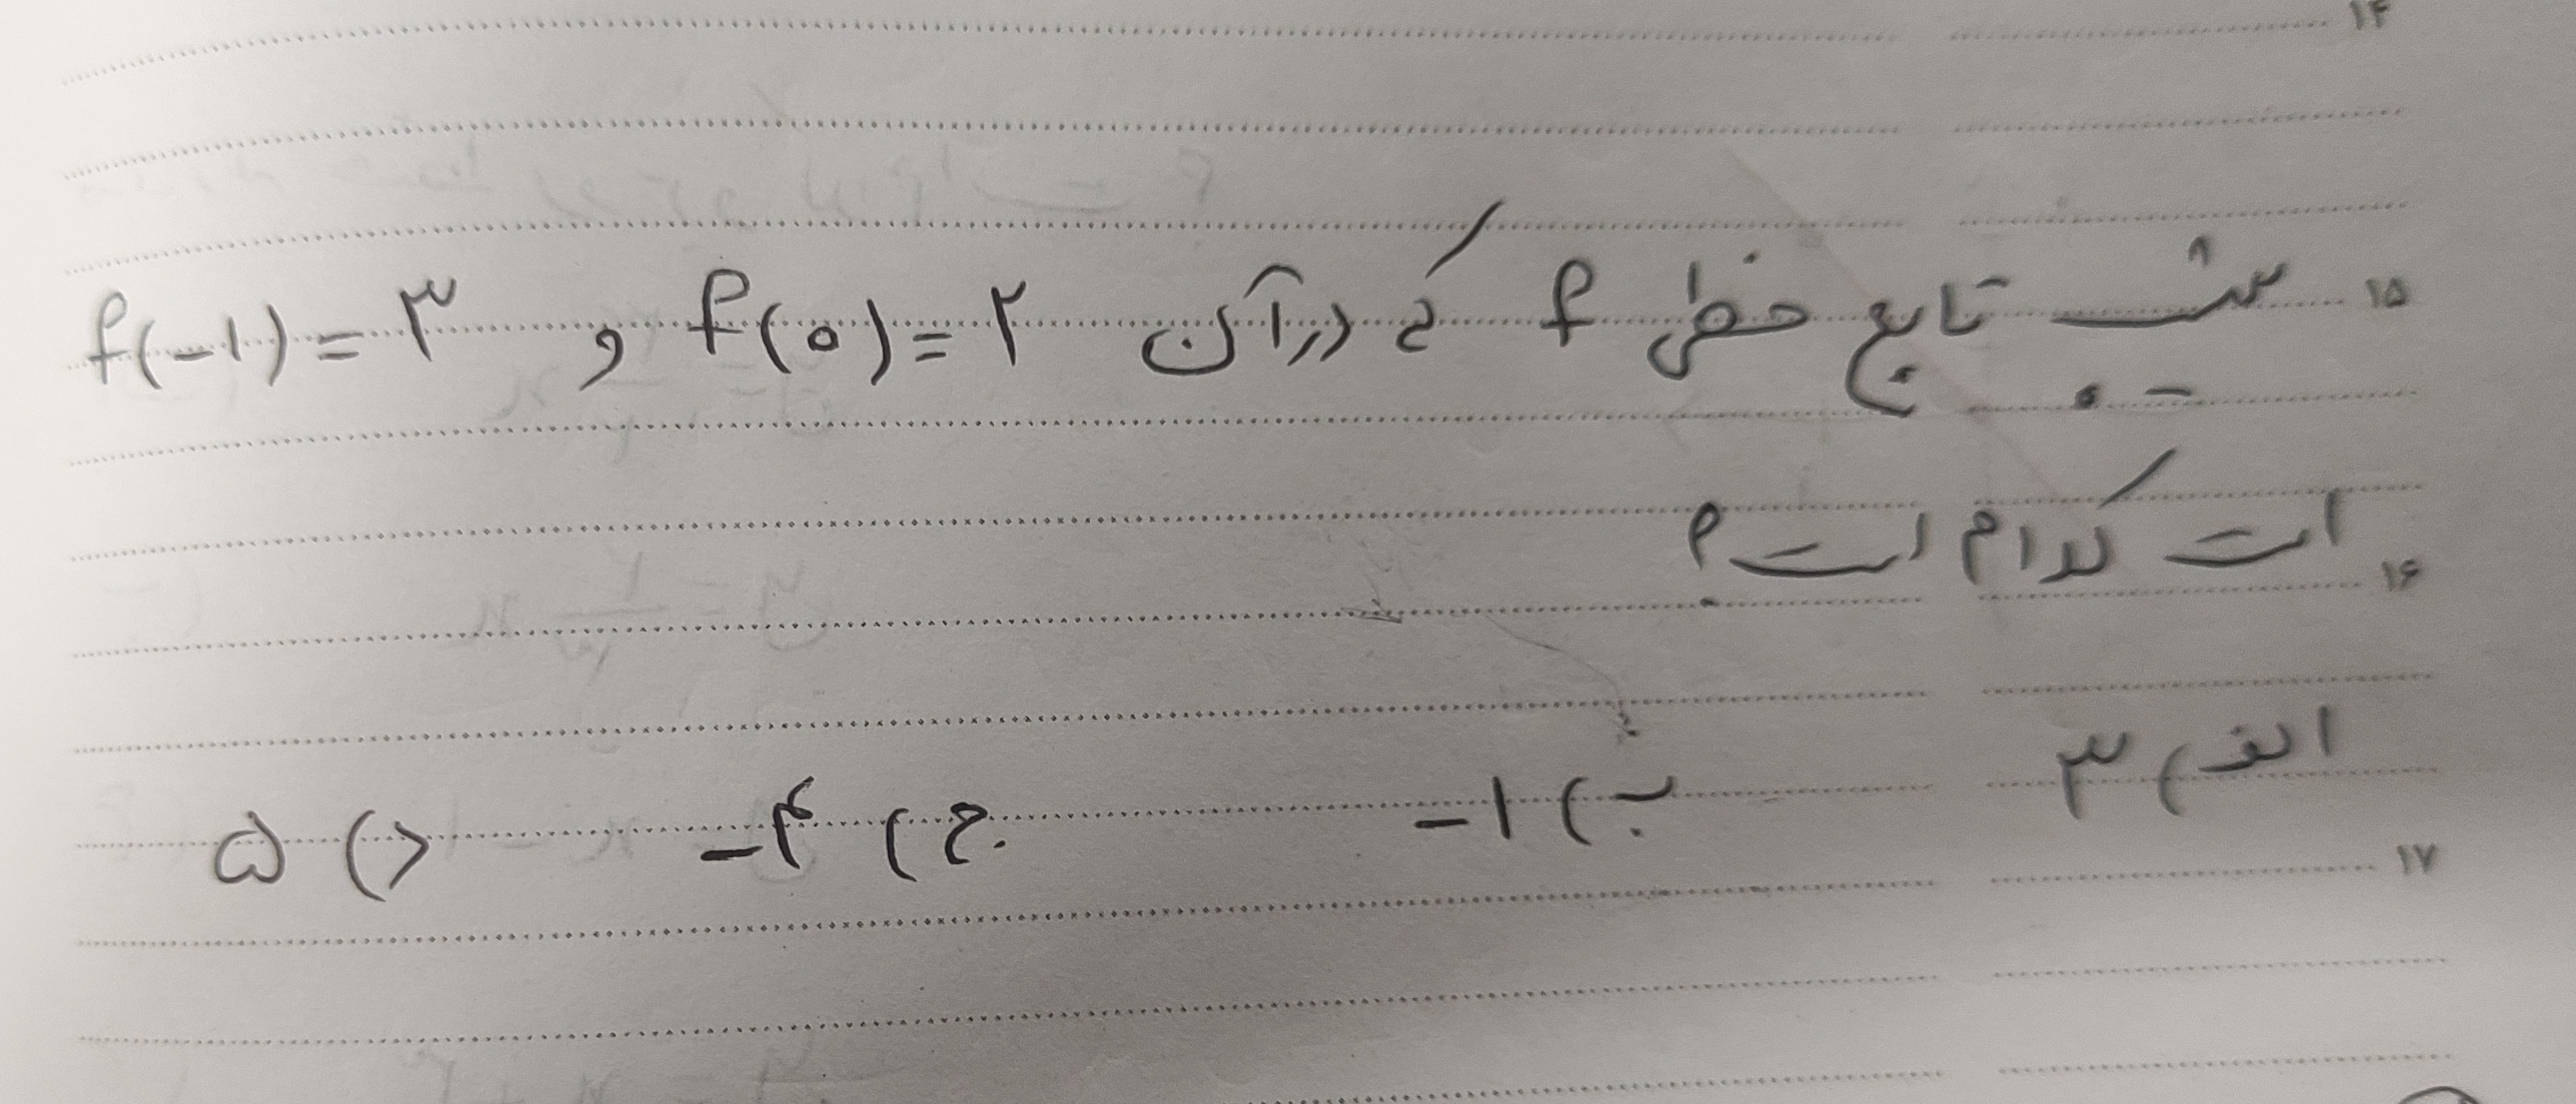 ۱۴
۱۵ شیب تابع خطی f که در آن f(۰) = ۲ و f(-۱) = ۳
است کدام است؟
۱۶
الف) ۳ ب) -۱ ج) -۴ د) ۵
۱۷